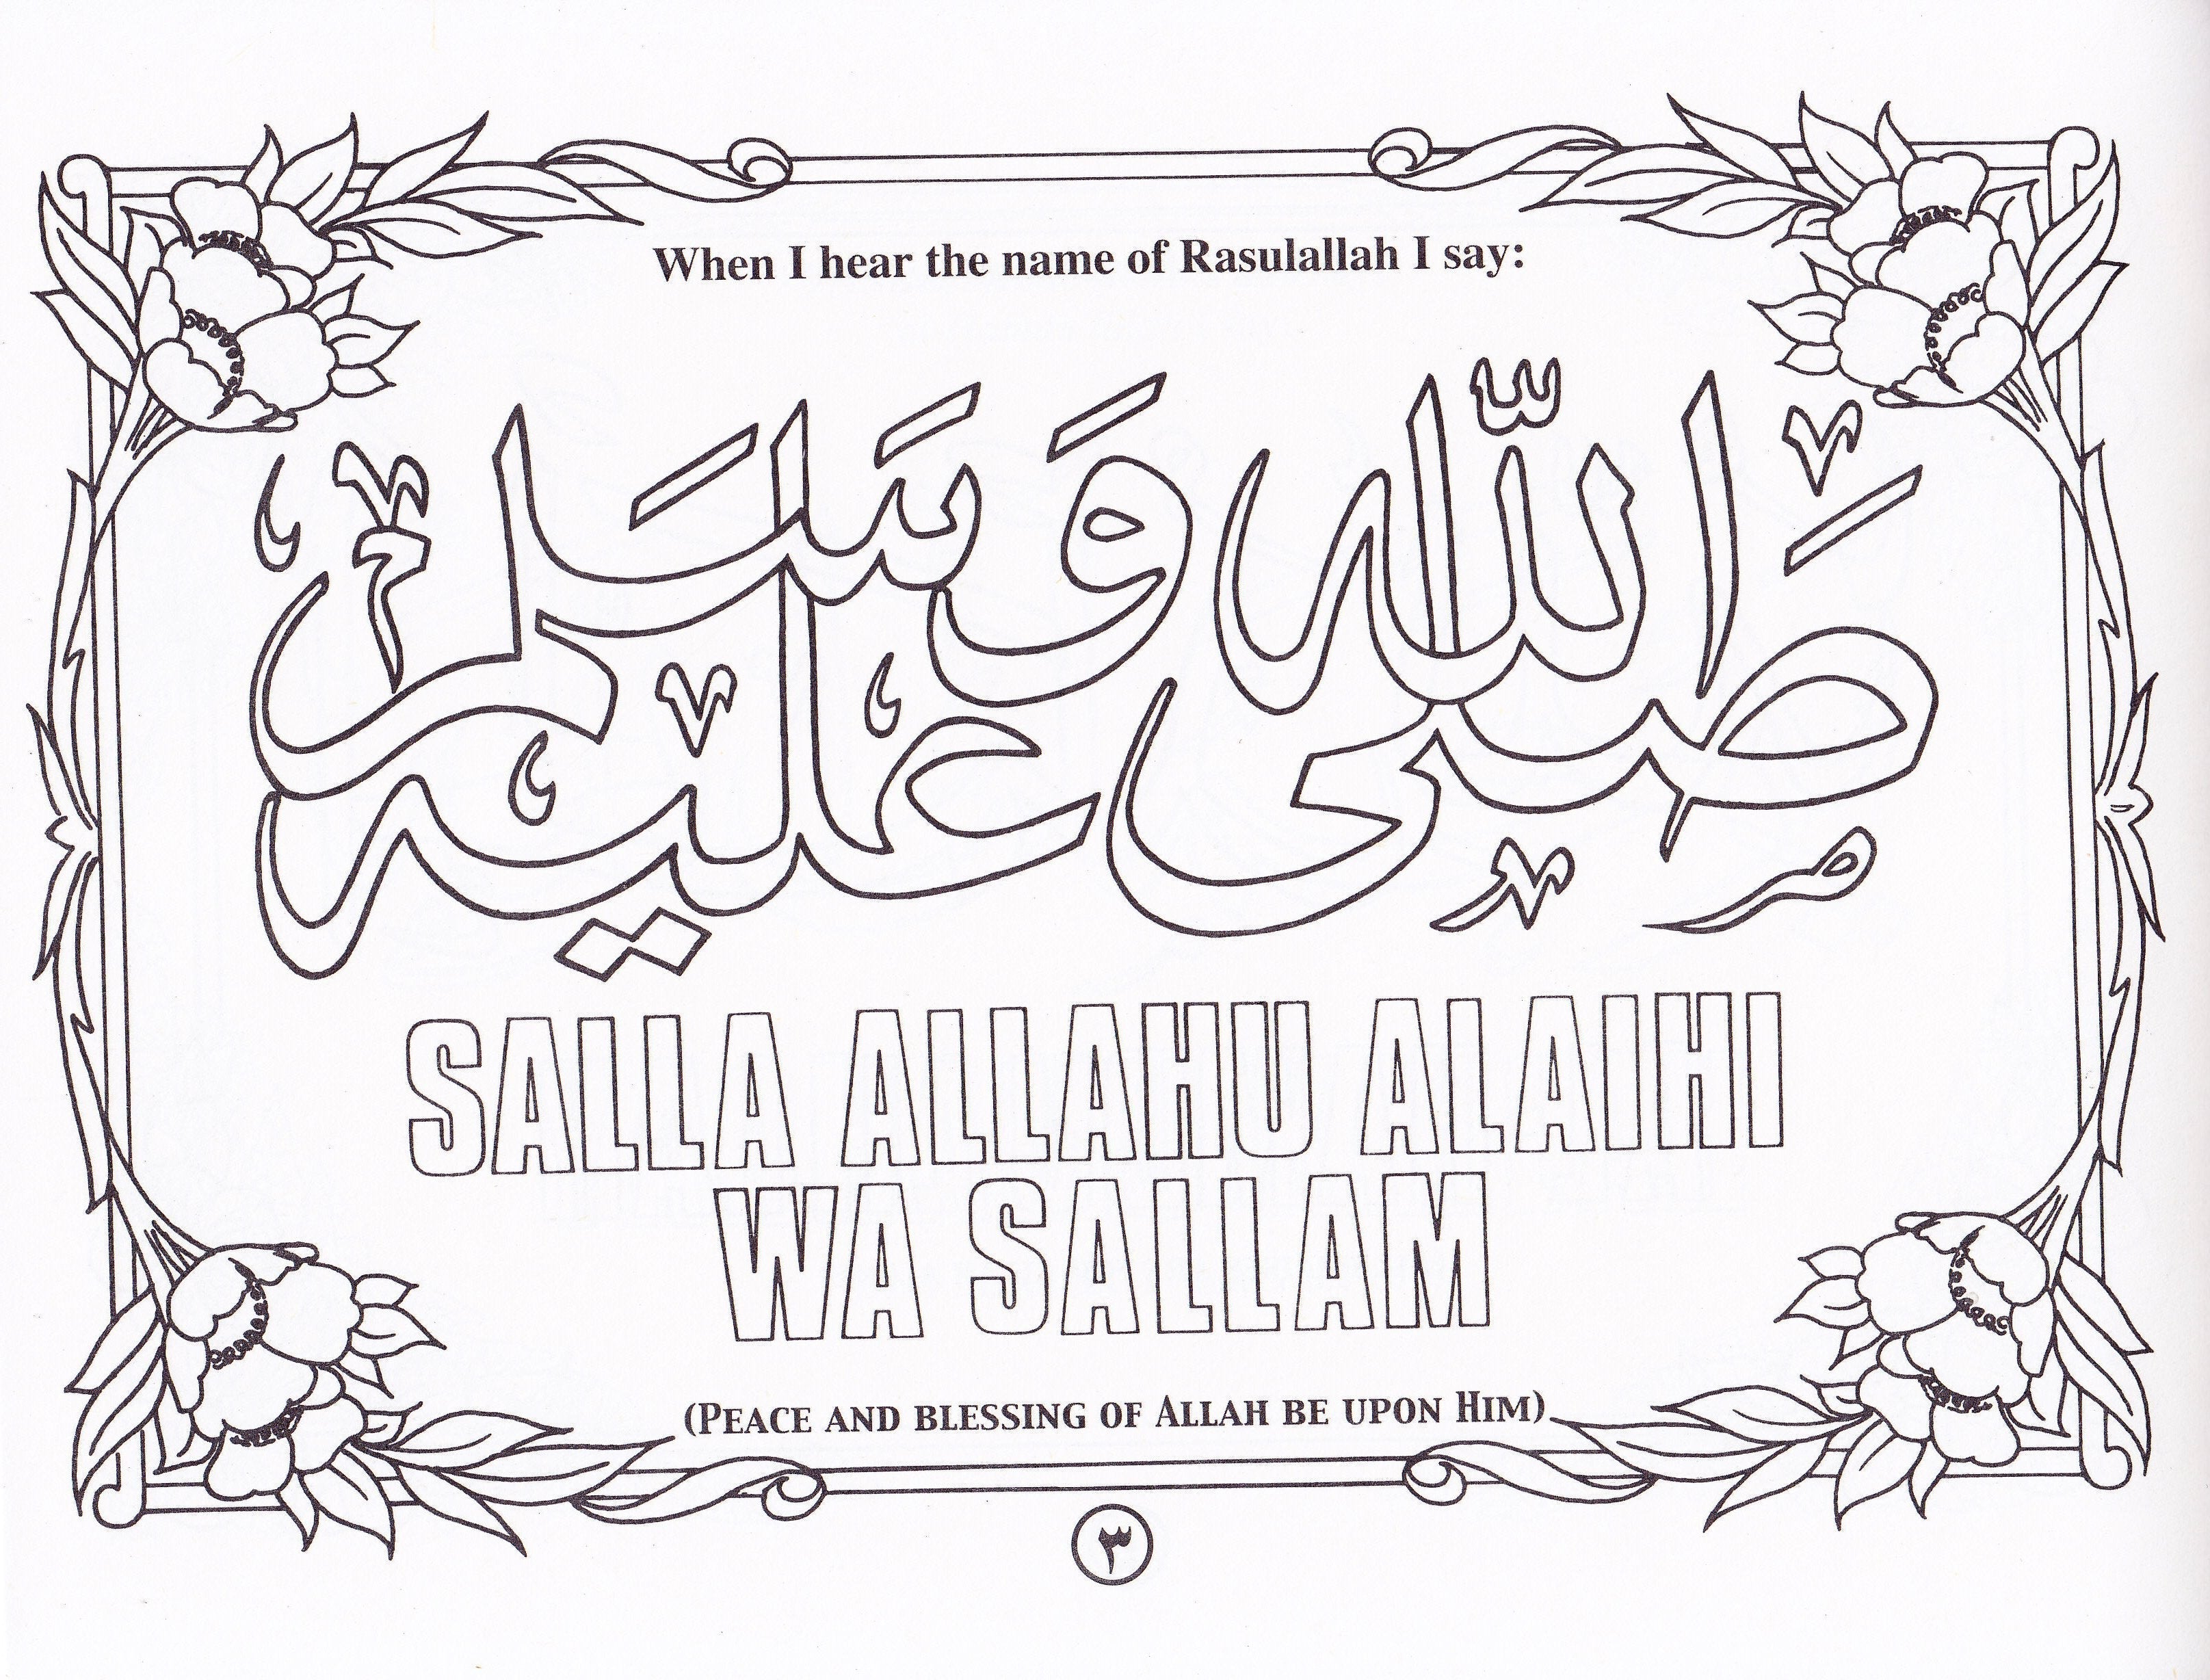 When I hear the name of Rasulallah I say:
صَلَّى اللّٰهُ
عَلَيْهِ وَسَلَّمَ
SALLA ALLAHU ALAIHI
WA SALLAM
(PEACE AND BLESSING OF ALLAH BE UPON HIM)
٣